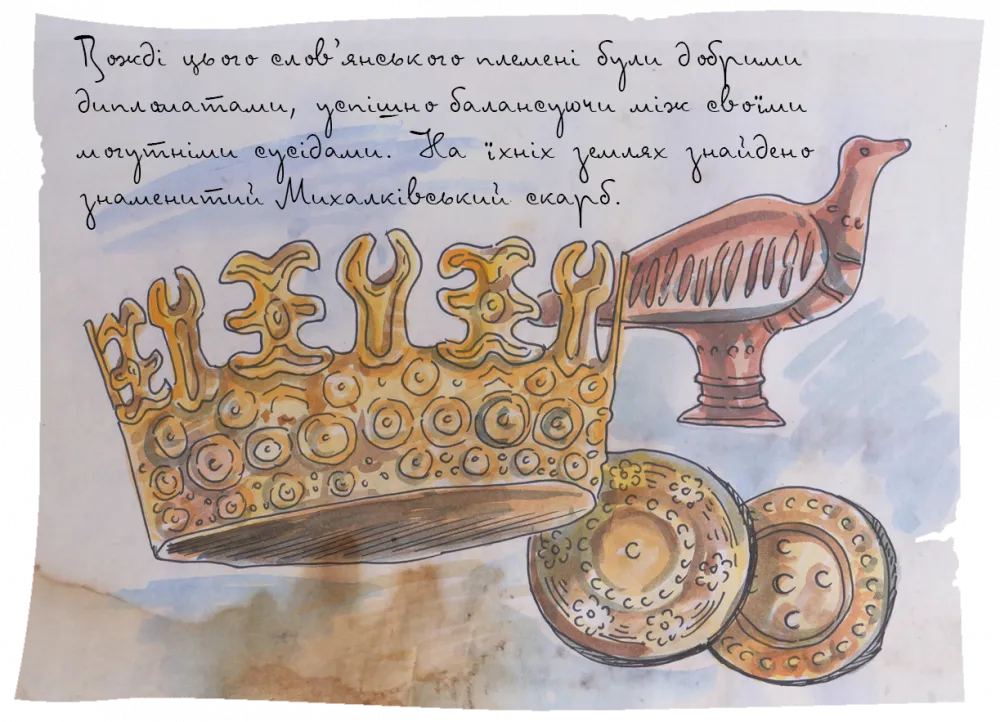 Вожді цього слов'янського племені були добрими
дипломатами, успішно балансуючи між своїми
могутніми сусідами. На їхніх землях знайдено
знаменитий Михалківський скарб.